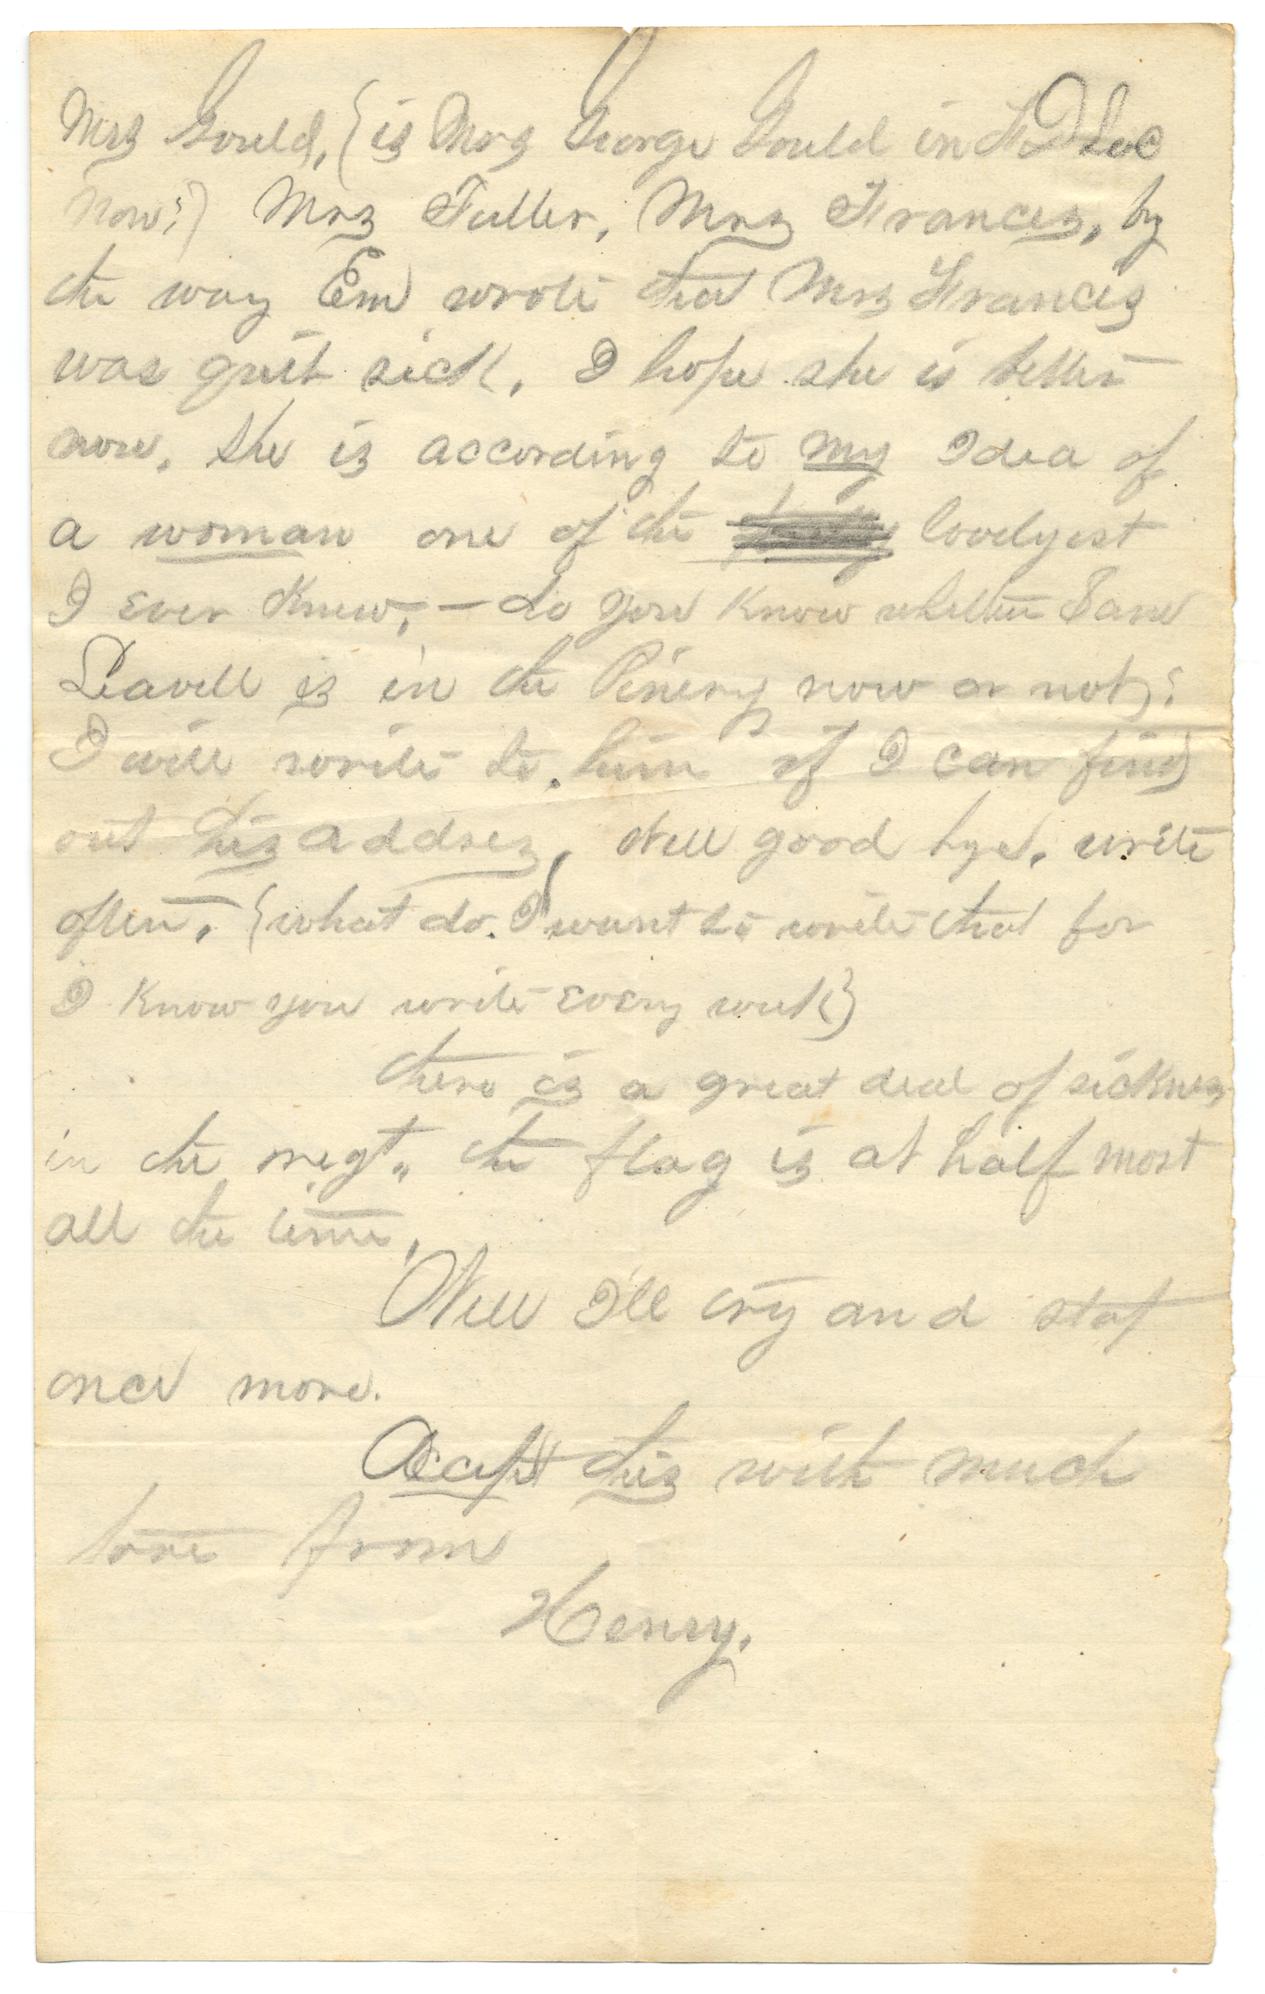 Mrs Gould, (is Mrs George Gould in F D Lac
now?) Mrs Fuller, Mrs Francis, by
the way Em wrote that Mrs Francis
was quit sick. I hope she is better
now. She is according to my Idea of
a woman one of the lovelyest
I ever knew. – do you know whether
Leavell is in the Pinery now or not?
I will write to him if I can find
out his addres. Well good bye. write
often. (what do I want to write that for
I know you write every week)
there is a great deal of sicknes
in the regt. the flag is at half most
all the time.
Well I'll try and stop
once more.
Accept this with much
love from
Henry.